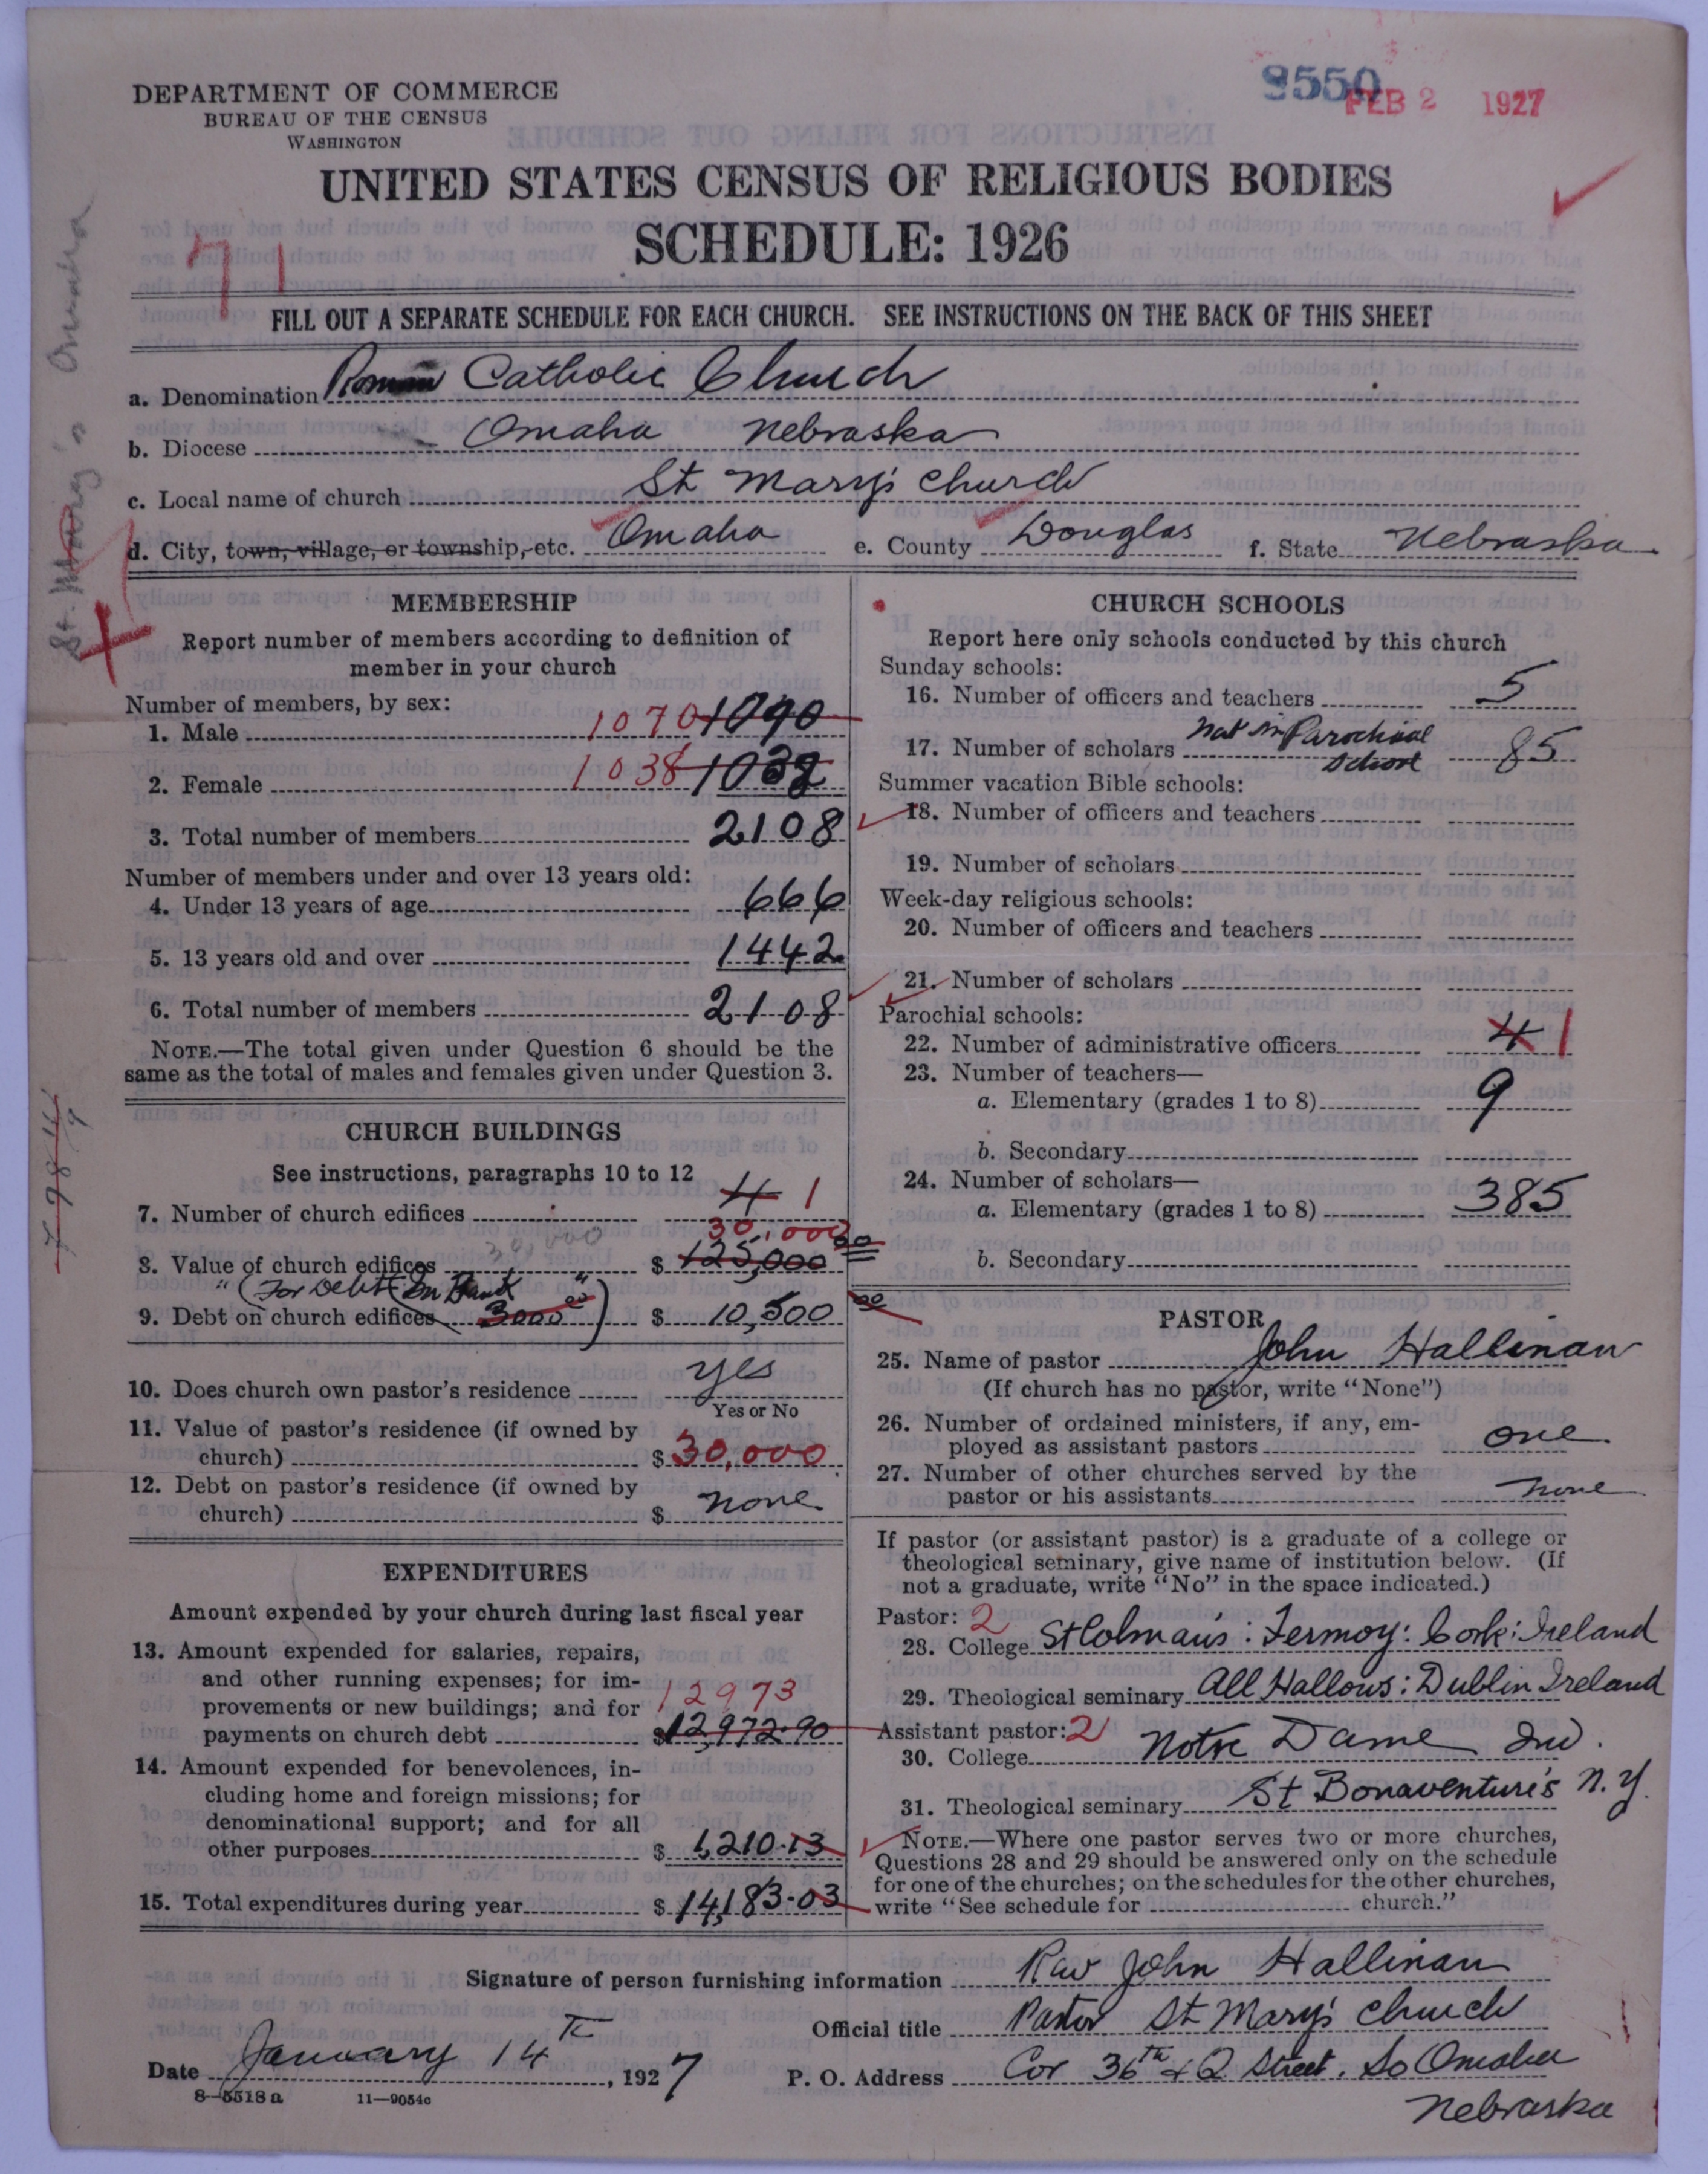 8550
FEB 2 1927
DEPARTMENT OF COMMERCE
BUREAU OF THE CENSUS
WASHINGTON
UNITED STATES CENSUS OF RELIGIOUS BODIES
SCHEDULE: 1926
71
FILL OUT A SEPARATE SCHEDULE FOR EACH CHURCH. SEE INSTRUCTIONS ON THE BACK OF THIS SHEET
St. Mary's Omaha
a. Denomination Roman Catholic Church
b. Diocese Omaha Nebraska
c. Local name of church St Mary's Church
d. City, town, village, or township, etc. Omaha e. County Douglas f. State Nebraska
MEMBERSHIP
Report number of members according to definition of
member in your church
Number of members, by sex:
1. Male 1070 1090
2. Female 1038 1038
3. Total number of members 2108
Number of members under and over 13 years old:
4. Under 13 years of age 666
5. 13 years old and over 1442
6. Total number of members 2108
NOTE.—The total given under Question 6 should be the
same as the total of males and females given under Question 3.
CHURCH BUILDINGS
See instructions, paragraphs 10 to 12
7. Number of church edifices 4 1
30,000
8. Value of church edifices $ 125,000 00
" (For Debt In Bank "
9. Debt on church edifices 3000 00) $ 10,500 00
10. Does church own pastor's residence yes
Yes or No
11. Value of pastor's residence (if owned by
church) $ 30,000
12. Debt on pastor's residence (if owned by
church) $ none
EXPENDITURES
Amount expended by your church during last fiscal year
13. Amount expended for salaries, repairs,
and other running expenses; for im-
provements or new buildings; and for 12973
payments on church debt $ 12,972.90
14. Amount expended for benevolences, in-
cluding home and foreign missions; for
denominational support; and for all
other purposes $ 1,210.13
15. Total expenditures during year $ 14,183.03
CHURCH SCHOOLS
Report here only schools conducted by this church
Sunday schools:
16. Number of officers and teachers 5
17. Number of scholars not in Parochial School 85
Summer vacation Bible schools:
18. Number of officers and teachers
19. Number of scholars
Week-day religious schools:
20. Number of officers and teachers
21. Number of scholars
Parochial schools:
22. Number of administrative officers 4 1
23. Number of teachers—
a. Elementary (grades 1 to 8) 9
b. Secondary
24. Number of scholars—
a. Elementary (grades 1 to 8) 385
b. Secondary
PASTOR
25. Name of pastor John Hallinan
(If church has no pastor, write "None")
26. Number of ordained ministers, if any, em-
ployed as assistant pastors one
27. Number of other churches served by the
pastor or his assistants none
If pastor (or assistant pastor) is a graduate of a college or
theological seminary, give name of institution below. (If
not a graduate, write "No" in the space indicated.)
Pastor: 2
28. College St Colman's: Fermoy: Cork: Ireland
29. Theological seminary All Hallows: Dublin Ireland
Assistant pastor: 2
30. College Notre Dame Ind.
31. Theological seminary St Bonaventure's N.Y.
NOTE.—Where one pastor serves two or more churches,
Questions 28 and 29 should be answered only on the schedule
for one of the churches; on the schedules for the other churches,
write "See schedule for church."
Signature of person furnishing information Rev John Hallinan
Official title Pastor St Mary's Church
Date January 14th, 1927 P. O. Address Cor 36th & Q Street. So Omaha
Nebraska
8—5518 a 11—9054c